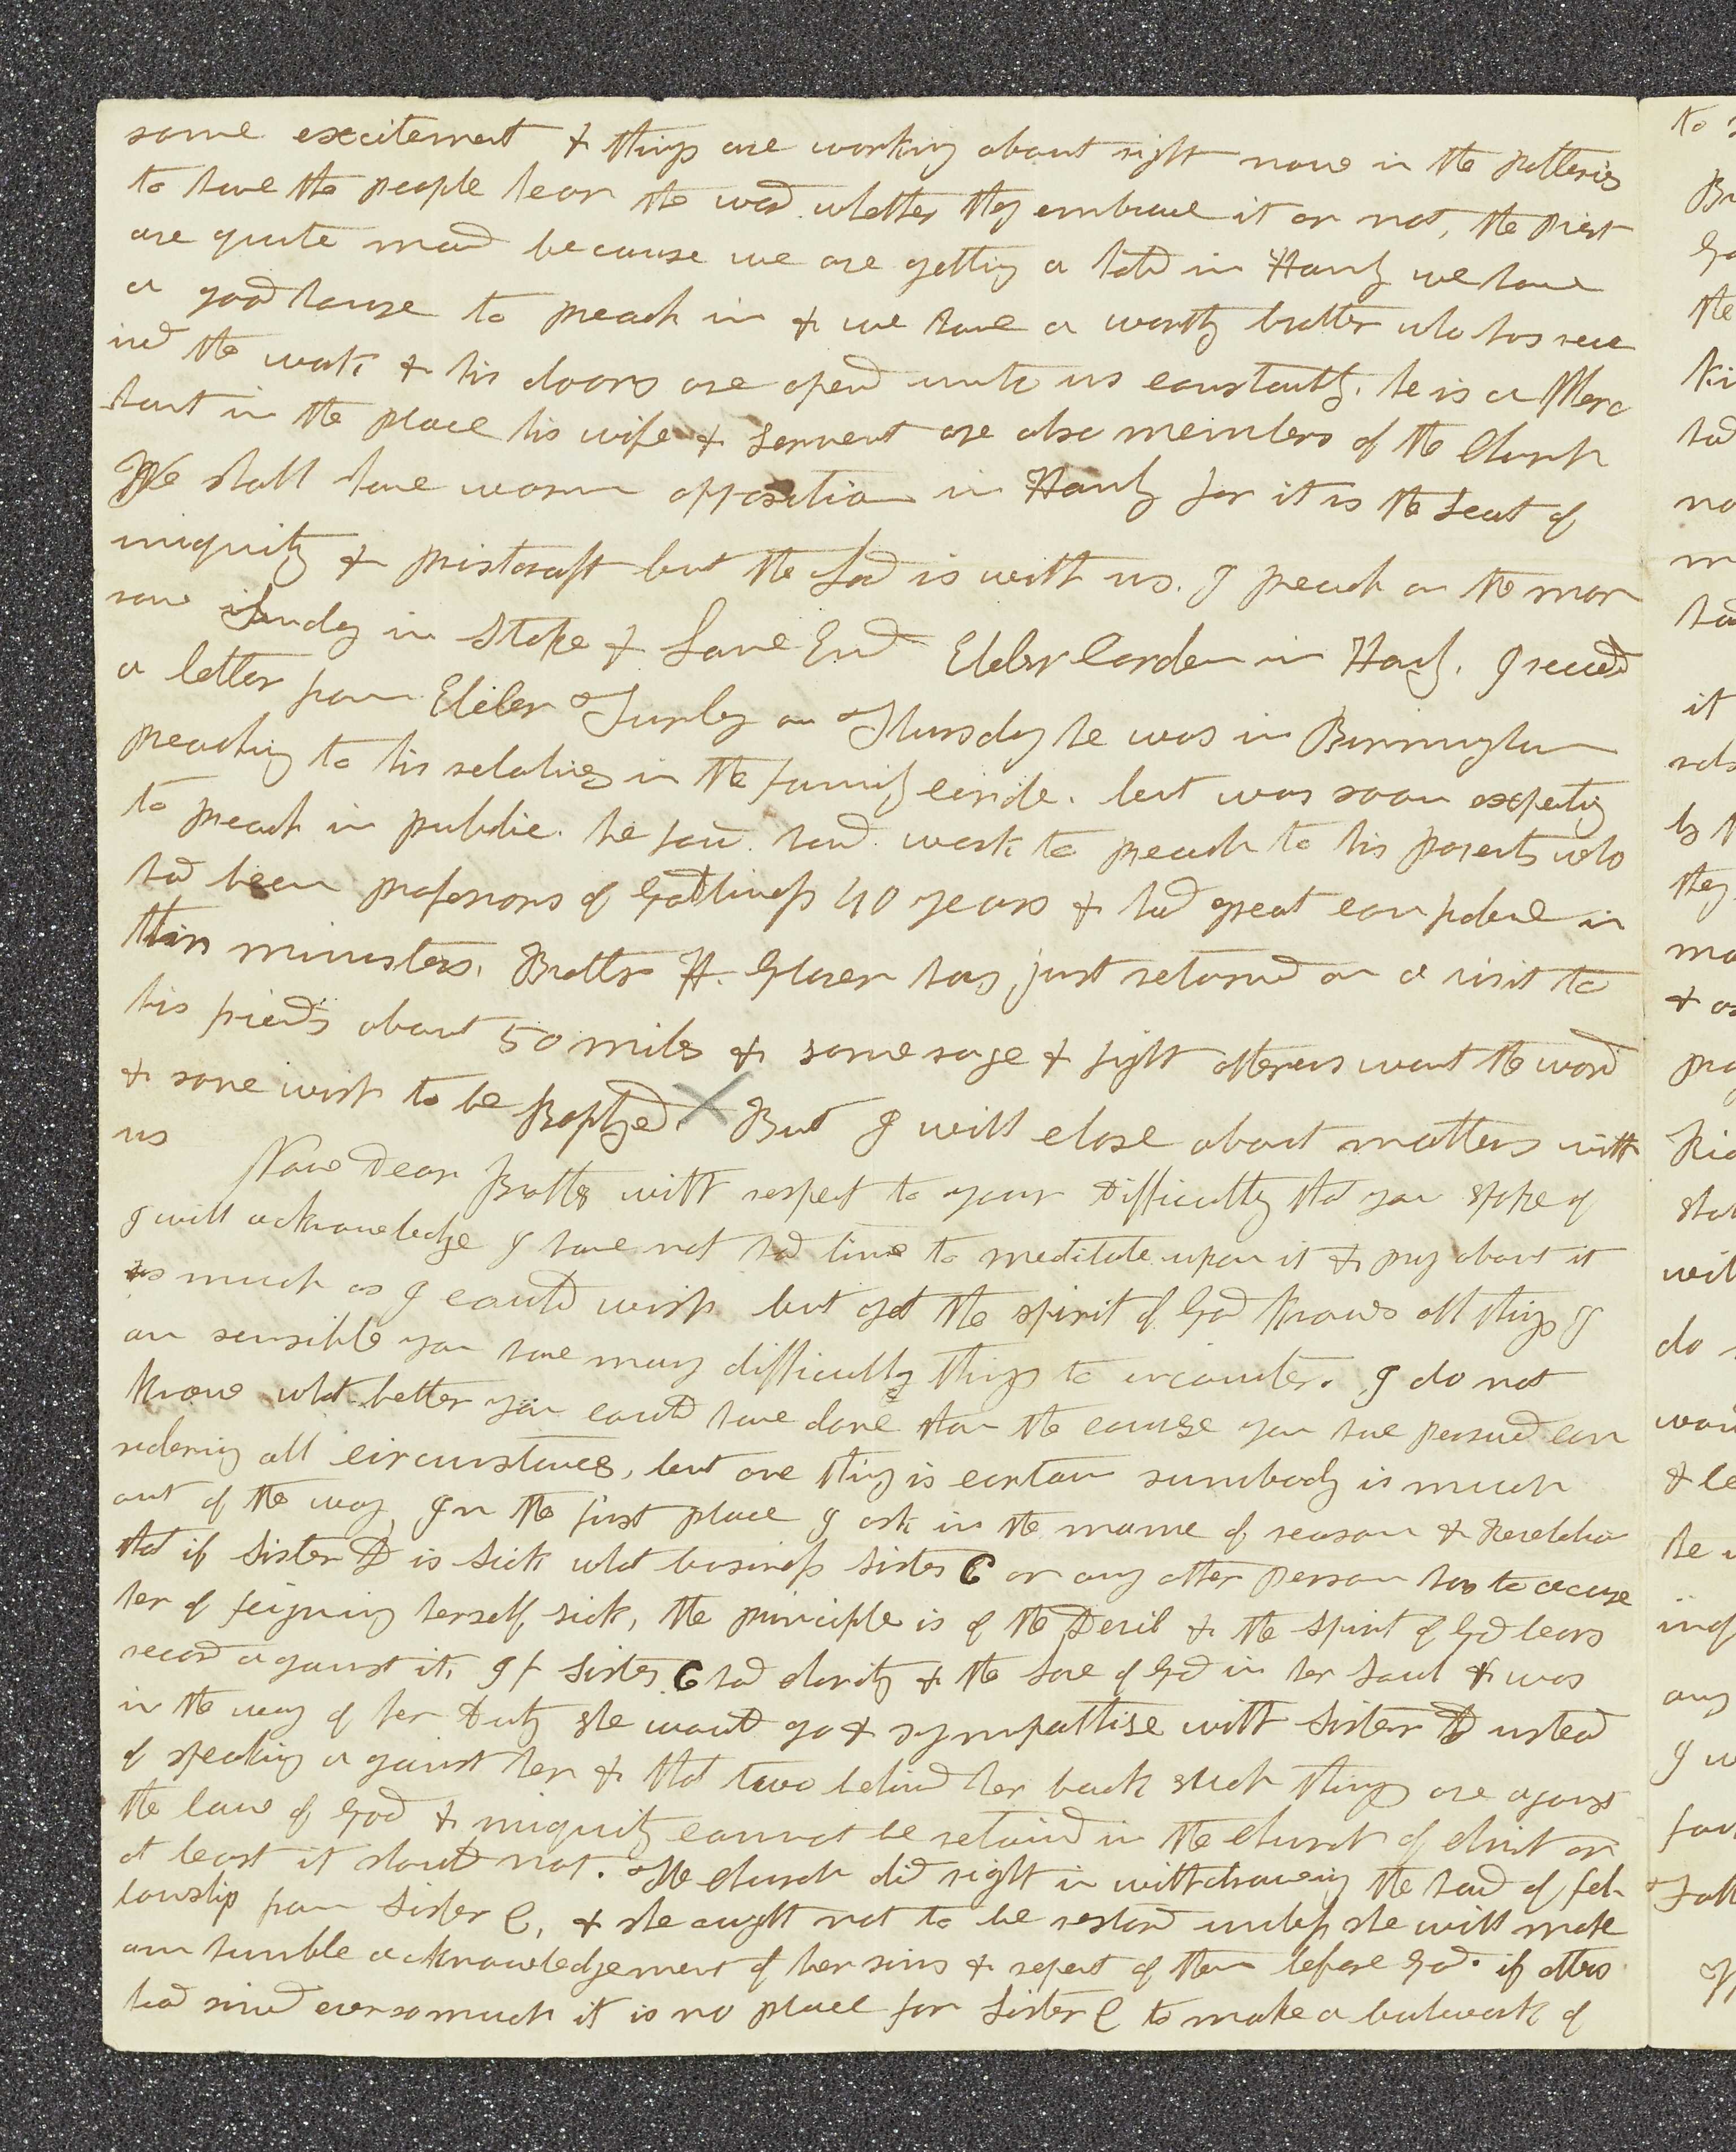 some excitement & things are working about right now in the potteries
to have the people hear the word whether they embrace it or not, the Priest
are quite mad because we are getting a hold in Hanly we have
a good house to preach in & we have a worthy brother who has rece
ived the work & his doors are opend unto us constantly. he is a Merc
hant in the place his wife & servent are also members of the Church
We shall have warm opposition in Hanly for it is the seat of
iniquity & pristcraft but the Lord is with us. I preach on the mor
row Sunday in Stoke & Lane End Elder Carden in Hanly. I receved
a letter from Elder Turley on Thursday he was in Burmingham
preaching to his relatives in the family circle. but was soon expecting
to preach in public. he found hard work to preach to his parents who
had been professors of Godliness 40 years & had great confidence in
their ministers. Brother H. Glover has just returned on a visit to
his friends about 50 miles & some rage & fight others want the word
& some wish to be Baptized. But I will close about matters with
us
Now Dear Brother with respect to your difficulty that you spoke of
I will acknowledge I have not had time to meditate upon it & pray about it
as much as I could wish but yet the spirit of God knows all things I
am sensible you have many difficulty things to incounter. I do not
know what better you could have done than the course you have persued con
sidering all circumstances, but one thing is certain sumbody is much
out of the way, In the first place I ask in the name of reason & Revelation
that if Sister D is sick what business sister C or any other person has to accuse
her of feigning herself sick, the principle is of the Devil & the spirit of God bears
record against it, If Sister C had charity & the love of God in her soul & was
in the way of her Duty she would go & sympathise with Sister D instead
of speaking against her & that two behind her back such things are against
the law of God & iniquity cannot be retaind in the church of christ or
at least it should not. The church did right in withdrawing the hand of fel-
lowship from Sister C, & she ought not to be restord unless she will make
an humble acknowledgement of her sins & repent of them before God. if others
had sined ever so much it is no place for Sister C to make a bulwark of